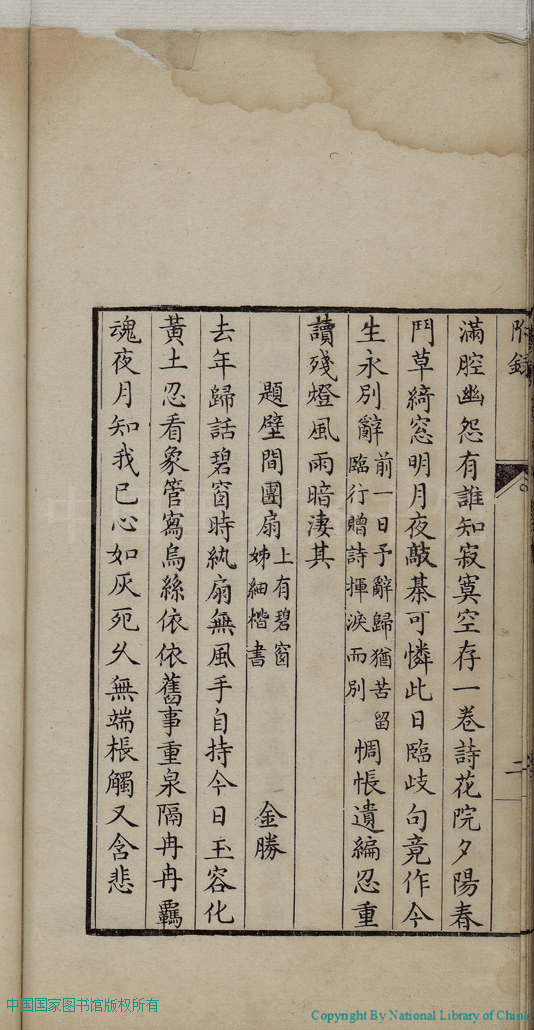 附錄
二
滿腔幽怨有誰知寂寞空存一卷詩花院夕陽春
鬥草綺窓明月夜敲棊可憐此日臨歧句竟作今
生永别辭前一日予辭歸猶苦留臨行贈詩揮淚而别惆悵遺編忍重
讀殘燈風雨暗淒其
題壁間團扇上有碧窗姊細楷書 金勝
去年歸話碧窗時紈扇無風手自持今日玉容化
黃土忍看象管寫烏絲依依舊事重泉隔冉冉羈
魂夜月知我已心如灰死久無端棖觸又含悲
中国国家图书馆版权所有
Copyright By National Library of China